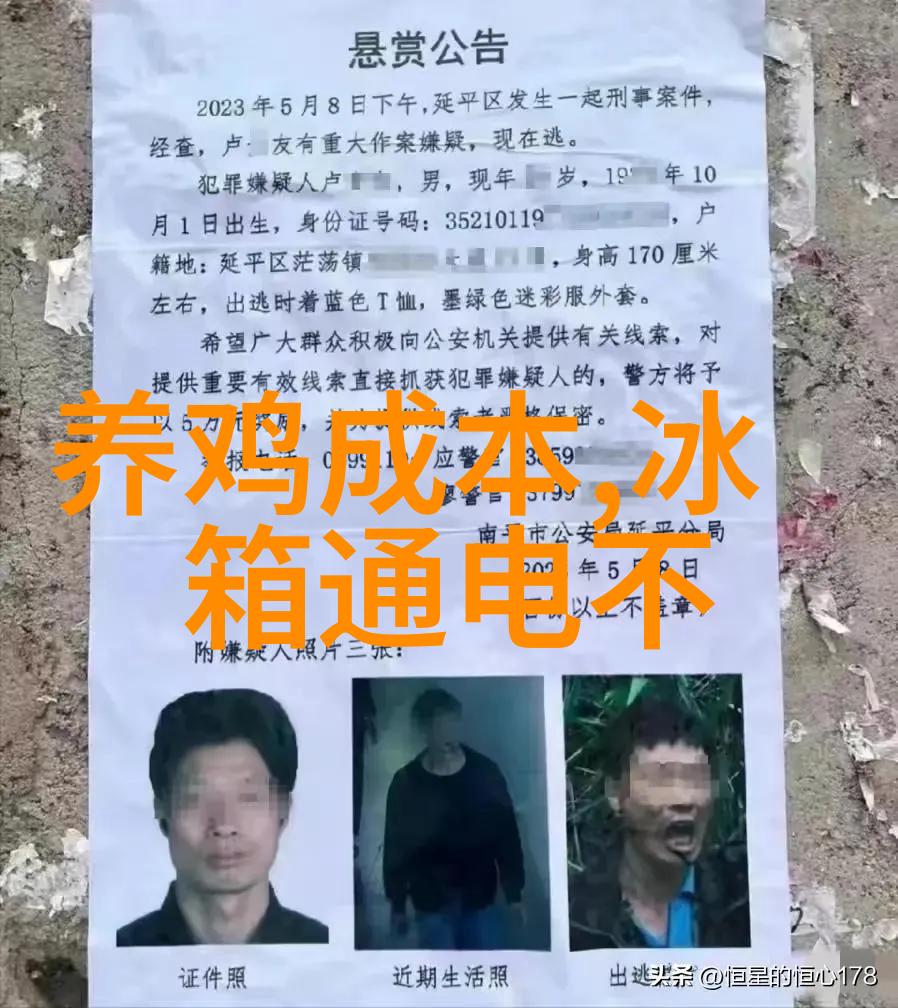 悬赏公告
2023年5月8日下午,延平区发生一起刑事案件,
经查,卢 友有重大作案嫌疑,现在逃。
犯罪嫌疑人卢 ,男,现年 岁,19 年10
月1日出生,身份证号码:35210119 ,户
籍地:延平区茫荡镇 ,身高170厘米
左右,出逃时着蓝色T恤,墨绿色迷彩服外套。
希望广大群众积极向公安机关提供有关线索,对
提供重要有效线索直接抓获犯罪嫌疑人的,警方将予
以5万元
养鸡成本,冰
箱通电不
严格保密。
应警官
南平市公安局延平分局
年5月8日
以上不盖章)
附嫌疑人照片三张:
证件照
近期生活照
出逃
头条 @恒星的恒心178